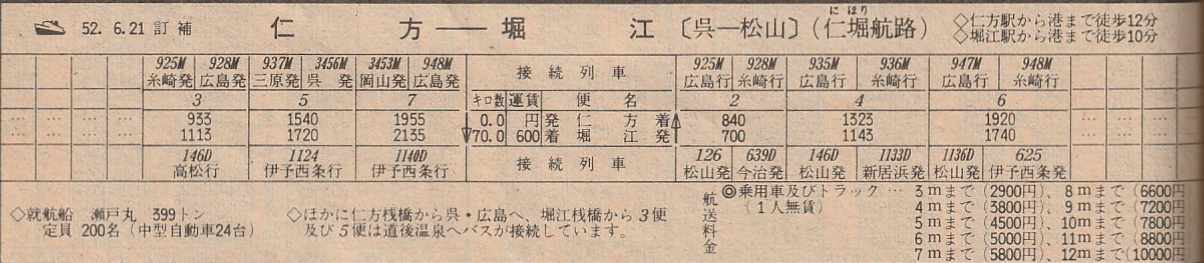 52. 6.21 訂補 仁方──堀江 〔呉─松山〕(仁堀航路) にほり
◇仁方駅から港まで徒歩12分
◇堀江駅から港まで徒歩10分
925M 928M 937M 3456M 3453M 948M 接続列車 925M 928M 935M 936M 947M 948M
糸崎発 広島発 三原発 呉発 岡山発 広島発 広島行 糸崎行 広島行 糸崎行 広島行 糸崎行
3 5 7 キロ数 運賃 便名 2 4 6
… … … 933 1540 1955 0.0 円 発 仁方 着 840 1323 1920 … … …
… … … 1113 1720 2135 70.0 600 着 堀江 発 700 1143 1740 … … …
146D 1124 1140D 接続列車 126 639D 146D 1133D 1136D 625
高松行 伊予西条行 伊予西条行 松山発 今治発 松山発 新居浜発 松山発 伊予西条発
◇就航船 瀬戸丸 399トン
定員 200名 (中型自動車24台)
◇ほかに仁方桟橋から呉・広島へ、堀江桟橋から3便
及び5便は道後温泉へバスが接続しています。
航送料金
◎乗用車及びトラック … 3mまで(2900円)、8mまで(6600
(1人無賃) 4mまで(3800円)、9mまで(7200
5mまで(4500円)、10mまで(7800
6mまで(5000円)、11mまで(8800
7mまで(5800円)、12mまで(10000円)